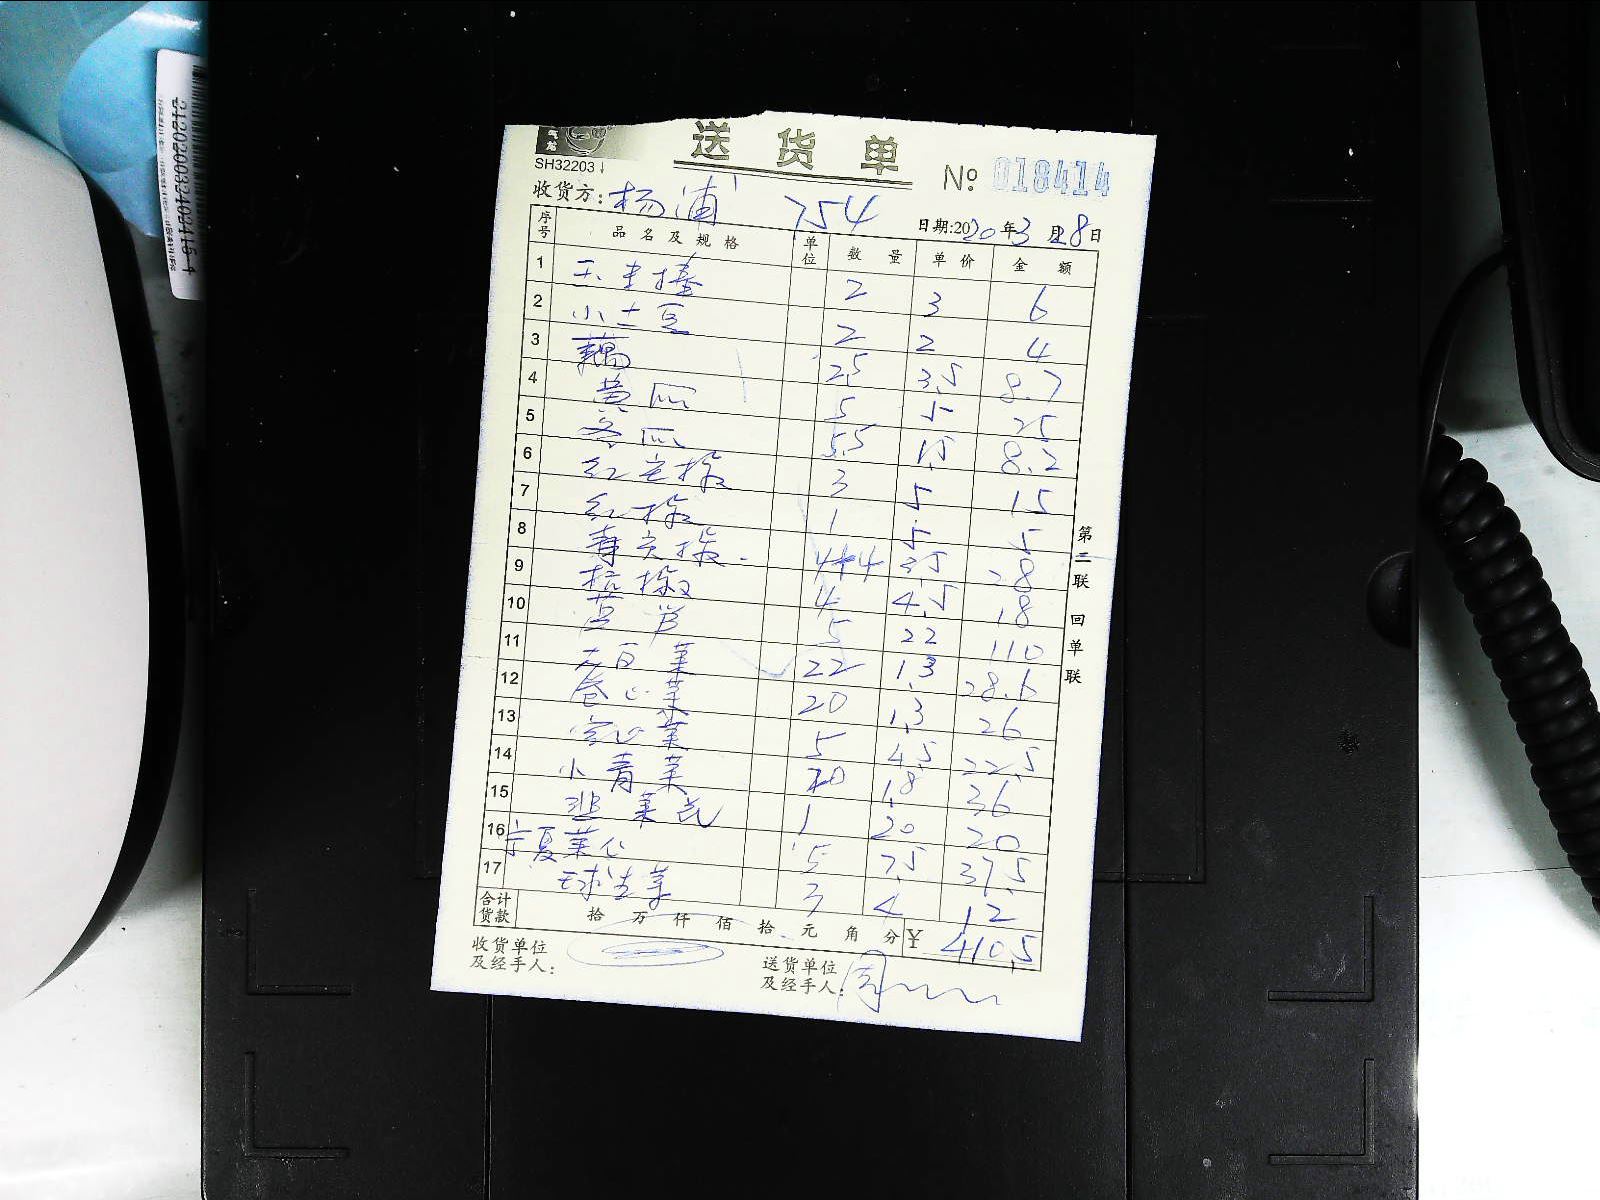 送货单
SH32203
№ 018414
收货方: 杨浦 754
日期:2020年3月28日
序号 品名及规格 单位 数量 单价 金额
1 玉丰棒 2 3 6
2 小土豆 2 2 4
3 藕 2.5 3.5 8.7
4 黄瓜 5 5 25
5 冬瓜 5.5 1.5 8.2
6 红尖椒 3 5 15
7 红椒 1 5 5
8 青尖椒 4+4 3.5 28
9 杭椒 4 4.5 18
10 5 22 110
11 大白菜 22 1.3 28.6
12 卷心菜 20 1.3 26
13 空心菜 5 4.5 22.5
14 小青菜 20 1.8 36
15 韭菜花 1 20 20
16 宁夏菜心 5 7.5 37.5
17 球生菜 3 4 12
合计货款 拾 万 仟 佰 拾 元 角 分 ¥ 410.5
收货单位及经手人:
送货单位及经手人: 周
第二联 回单联
2120200324034154